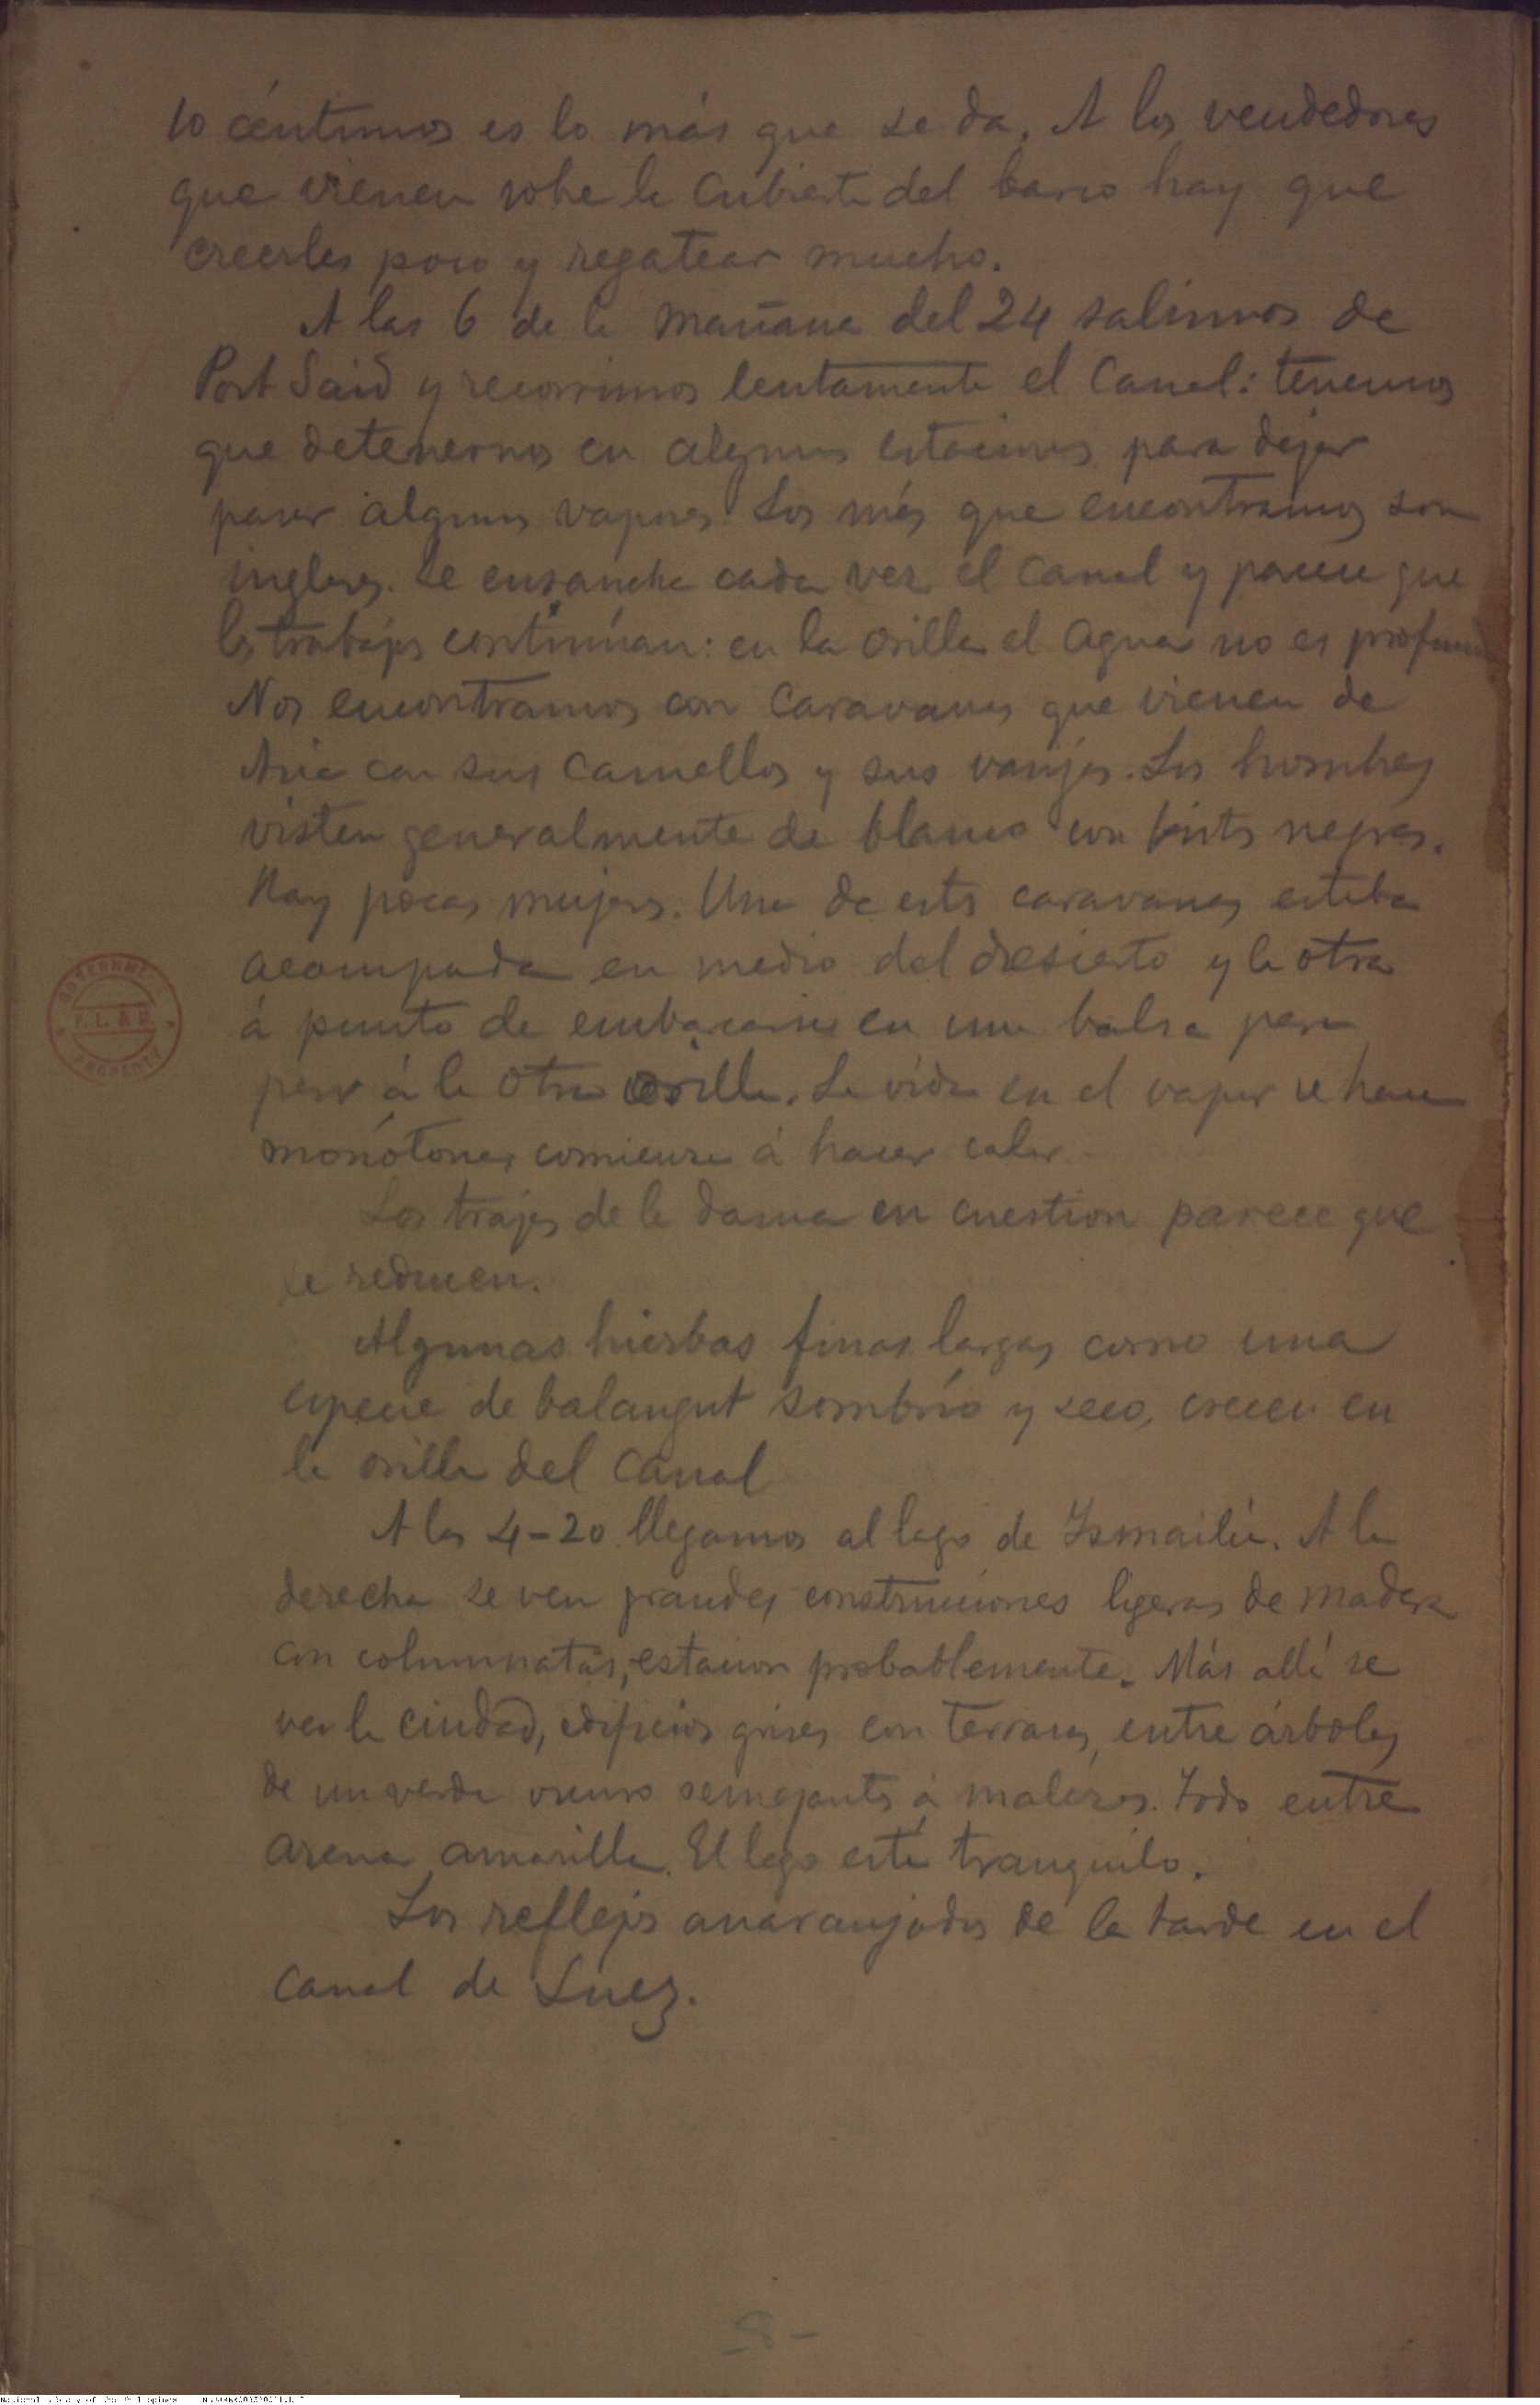 10 céntimos es lo más que se da. A los vendedores
que vienen sobre la cubierta del barco hay que
creerles poco y regatear mucho.
A las 6 de la mañana del 24 salimos de
Port Said y recorrimos lentamente el Canal: tenemos
que detenernos en algunas estaciones para dejar
pasar algunos vapores. Los más que encontramos son
ingleses. Se ensancha cada vez el Canal y parece que
los trabajos continúan: en la orilla el agua no es
Nos encontramos con caravanas que vienen de
Asia con sus camellos y sus. Los hombres
visten generalmente de blanco con negros.
Hay pocas mujeres. Una de estas caravanas estaba
acampada en medio del desierto y la otra
á punto de embarcarse en una balsa para
pasar á la otra orilla. La vida en el vapor se hace
monótona, comienza á hacer calor.
Los trajes de la dama en cuestion parece que
se reducen.
Algunas hierbas finas largas como una
especie de balangut sombrío y seco, crecen en
la orilla del Canal
A las 4-20 llegamos al lago de Ismailia. A la
derecha se ven grandes construcciones ligeras de madera
con columnatas, estacion probablemente. Más allá se
ven la ciudad, edificios grises con terrazas, entre árboles
de un verde oscuro semejantes á malezas. Todo entre
arena amarilla. El lago está tranquilo.
Los reflejos anaranjados de la tarde en el
Canal de Suez.
GOVERNMENT
P. L. & M.
PROPERTY
-8-
National Library of the Philippines